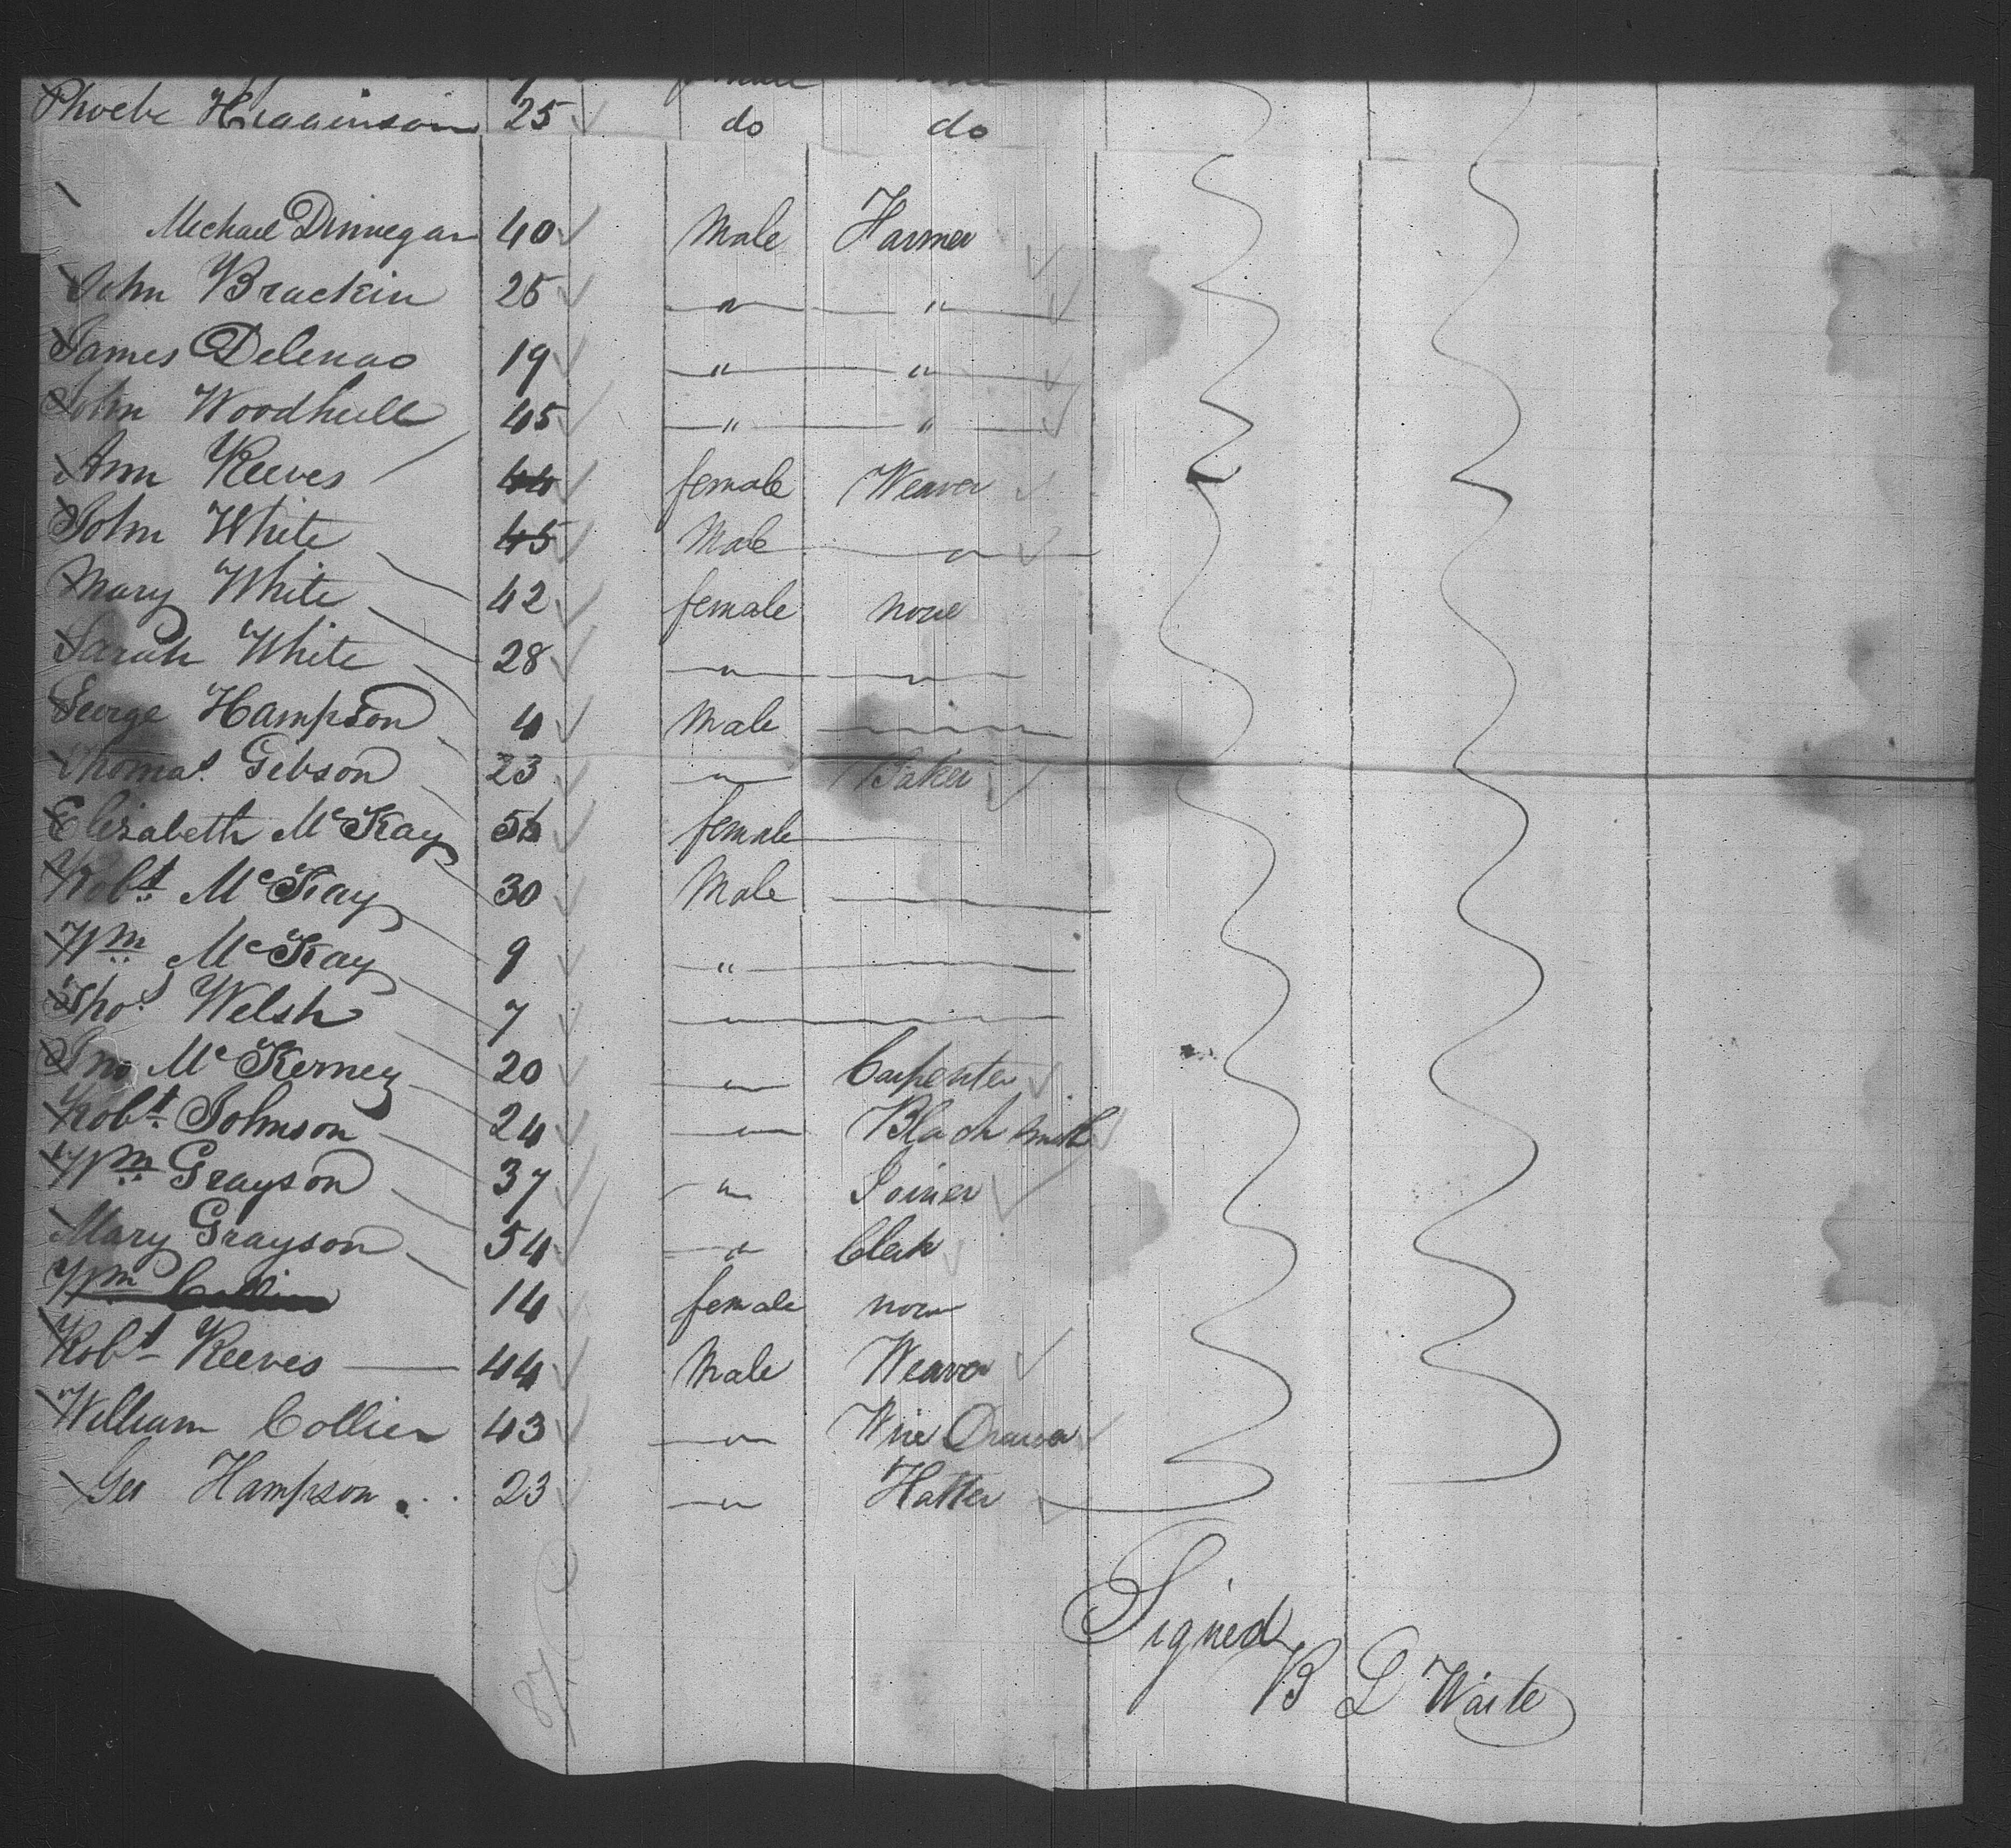 Phoebe Higginson 25 do do
Michael Dinnegan 40 Male Farmer
John Brackin 25 " "
James Delenao 19 " "
John Woodhull 45 " "
Ann Reeves 44 female Weaver
John White 45 Male "
Mary White 42 female none
Sarah White 28 " "
George Hampson 4 Male "
Thomas Gibson 23 " Baker
Elizabeth McKay female
Robt McKay 30 Male
Wm McKay 9 "
Thos Welsh 7 "
Jno McKerney 20 " Carpenter
Robt Johnson 24 " Black smith
Wm Grayson 37 " Joiner
Mary Grayson 54 " Clerk
Wm Collier 14 female none
Robt Reeves 44 Male Weaver
William Collier 43 " Wire Drawer
Geo Hampson 23 " Hatter
Signed
B L Waite
87